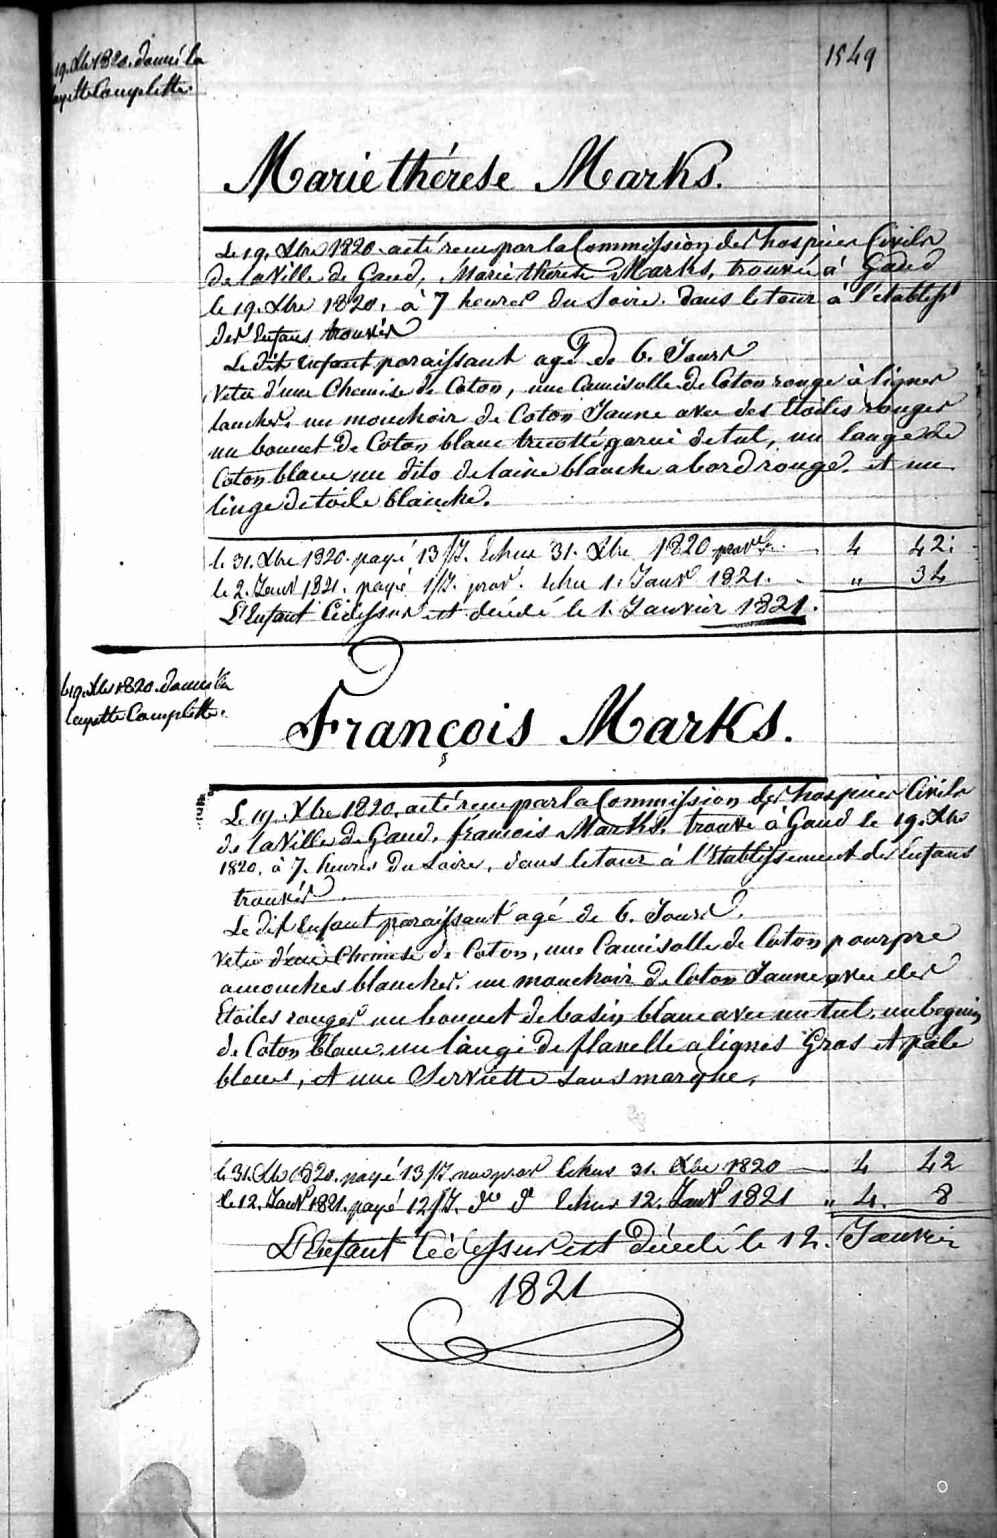 19. Xbre 1820. donné la
layette Complette.
1549
Marie thérèse Marks.
Le 19. Xbre 1820. a eté reçu par la Commission des hospices Civils
de la Ville de Gand, Marie thérèse Marks, trouvée à Gand
le 19. Xbre 1820. à 7 heures du Soire. dans le tour à l'établisst
des Enfans trouvés
Le dit Enfant paraissant agé de 6. Jours
Vetu d'une Chemise de Coton, une Camisolle de Coton rouge à lignes
blanches. un mouchoir de Coton Jaune avec des Etoiles rouges
un bonnet de Coton blanc tricotté garni de tul, un lange de
Coton blanc un dito de laine blanche a bord rouge. et un
linge de toile blanche.
le 31. Xbre 1820. payé 13 /J. Echue 31. Xbre 1820 4 42
le 2. Janvr 1821. payé 1/J. prov. echu 1. Janvr 1821. " 34
L'Enfant Cidessus est décédé le 1. Janvier 1821.
le 19. Xbre 1820. donné la
layette Complette.
François Marks.
Le 19. Xbre 1820. a eté reçu par la Commission des hospices Civils
de la Ville de Gand. françois Marks. trouvé a Gand le 19. Xbre
1820. à 7. heures du Soire, dans le tour à l'Etablissement des Enfans
trouvés
Le dit Enfant paraissant agé de 6. Jours.
Vetu d'une Chemise de Coton, une Camisolle de Coton pourpre
a mouches blanches. un mouchoir de Coton Jaune avec des
Etoiles rouges un bonnet de basin blanc avec un tul, un beguin
de Coton blanc, un lange de flanelle a lignes Gras et pale
bleues, et une Serviette sans marque.
le 31. Xbre 1820. payé 13 /J. echus 31. Xbre 1820 4 42
le 12. Janvr 1821. payé 12/J. do do Echus 12. Janvr 1821 " 4. 8
L'Enfant Cidessus est Décédé le 12. Janvier
1821